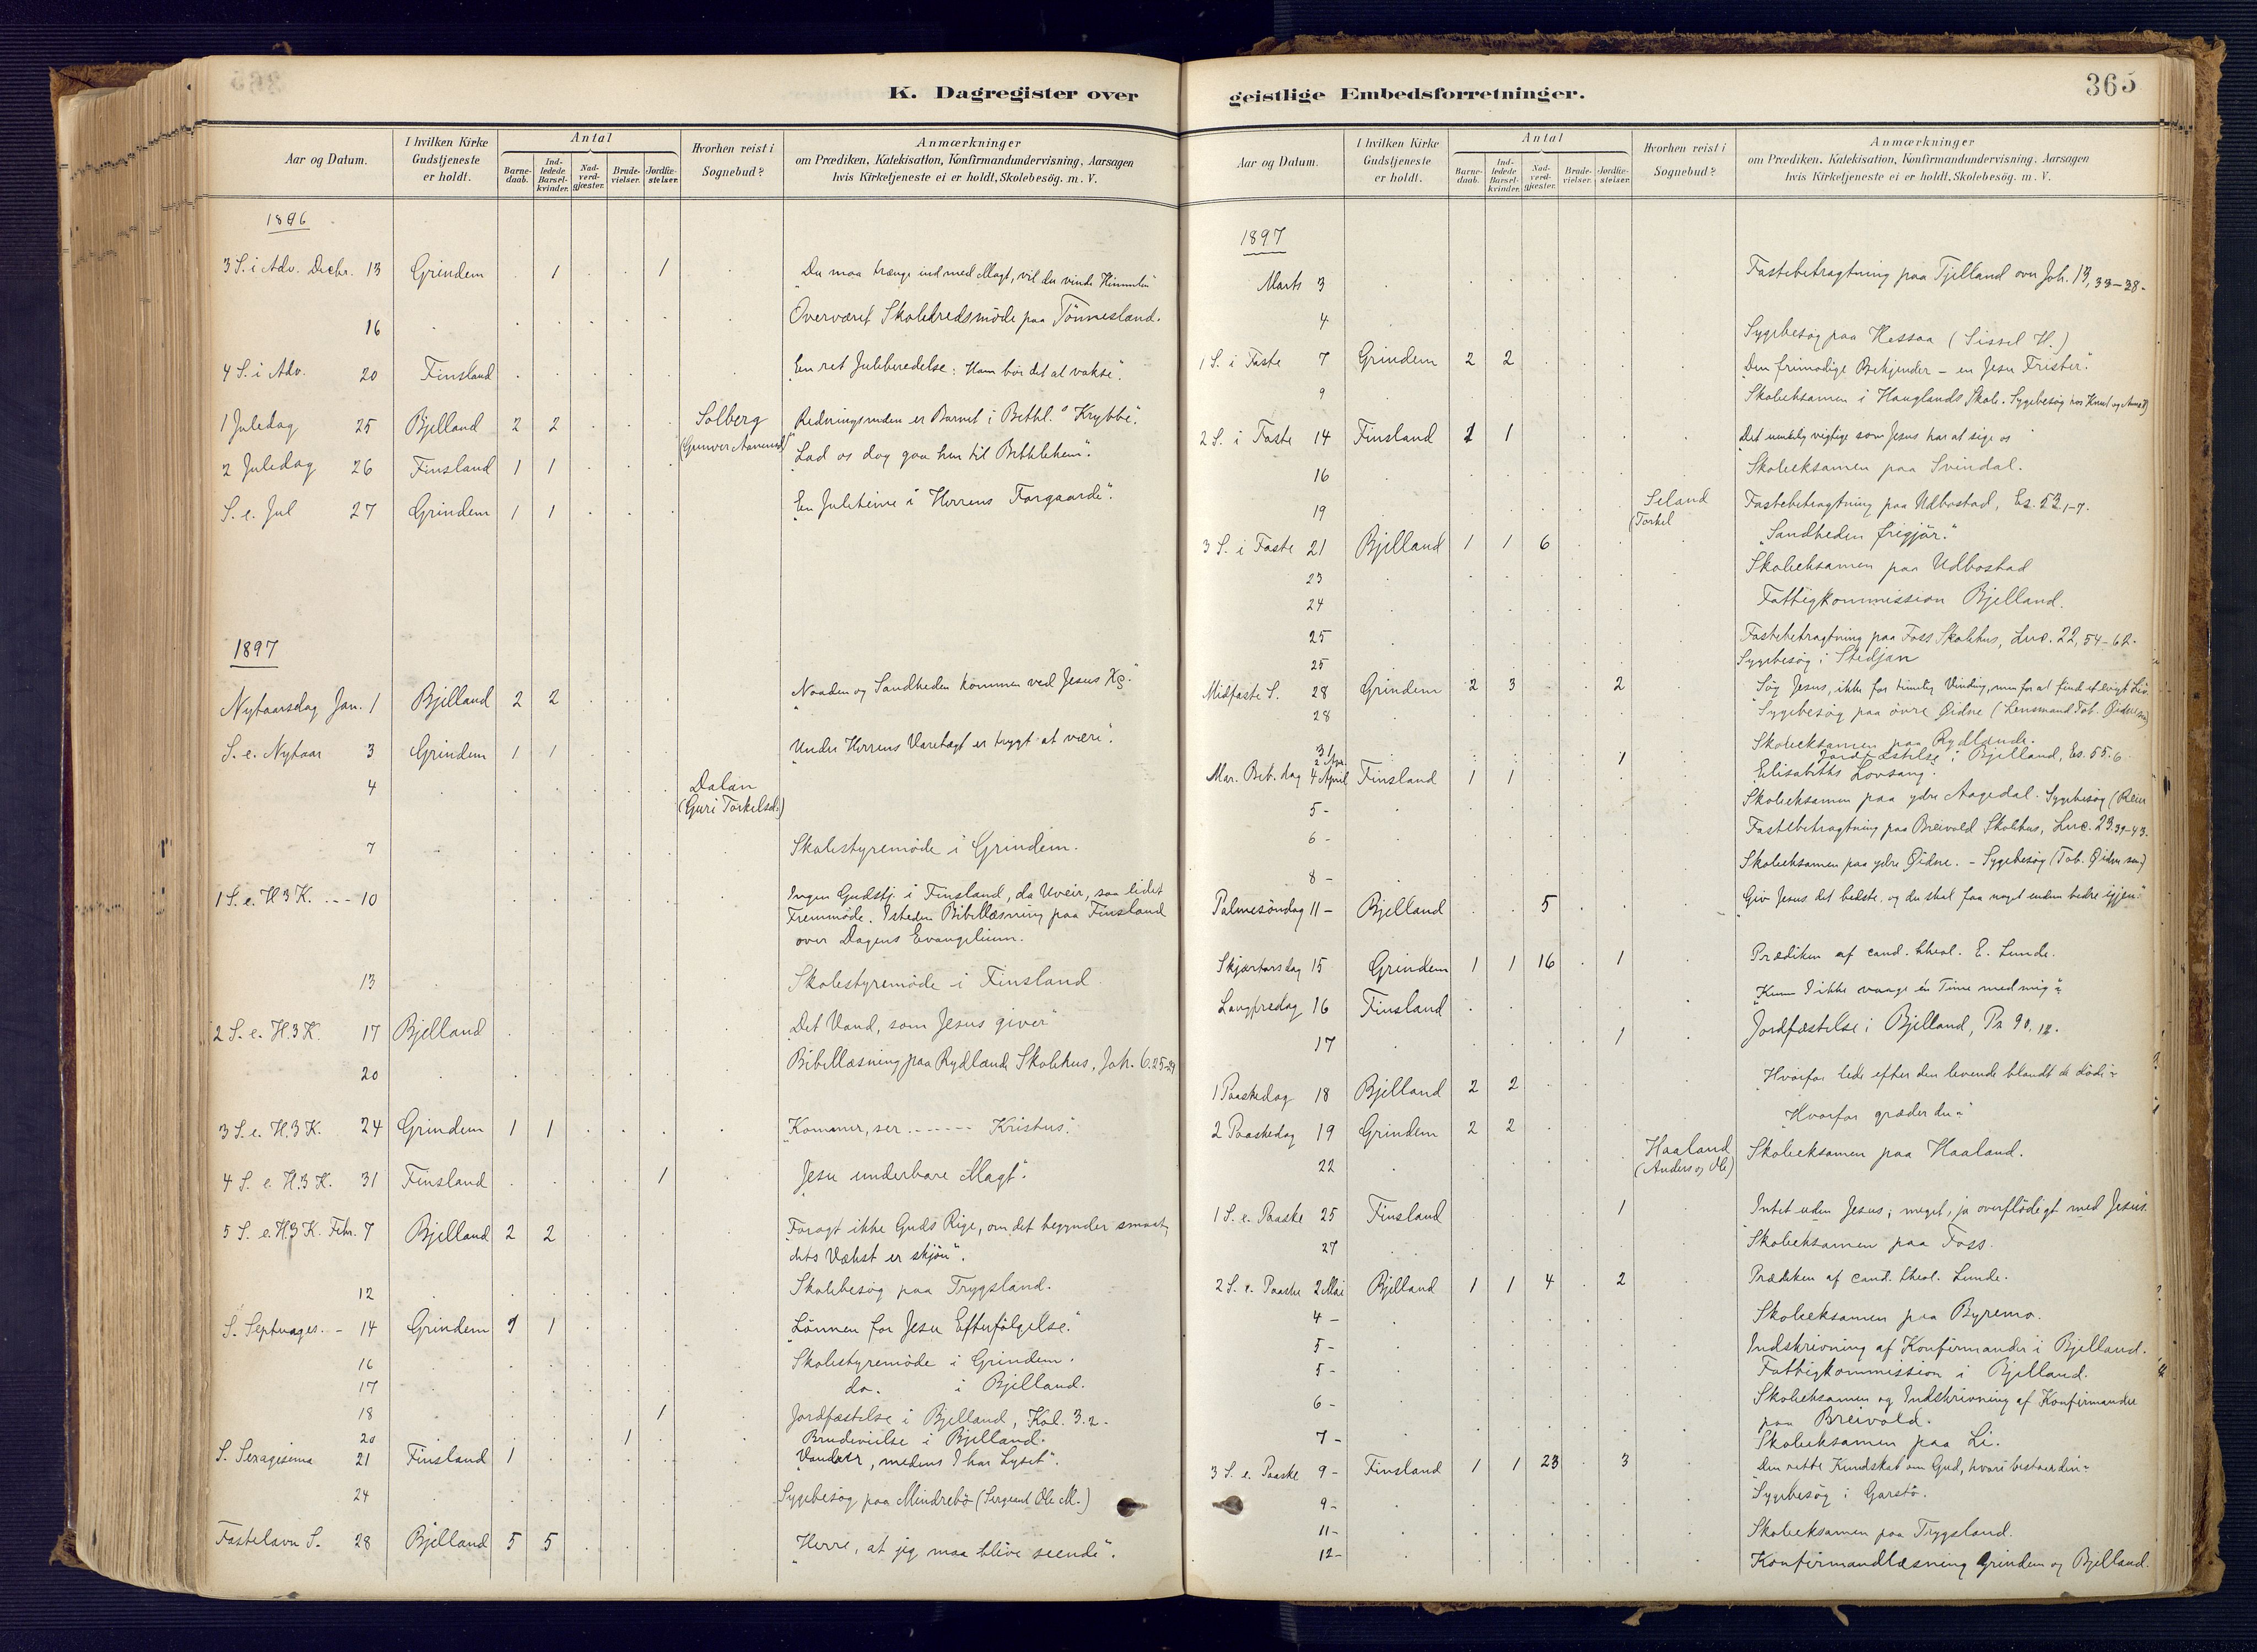 K. Dagregister over
Aar og Datum.
I hvilken Kirke Gudstjeneste er holdt.
Antal
Barne-daab.
Ind-ledede Barsel-kvinder.
Nad-verd-gjæster.
Brude-vielser.
Jordfæ-stelser.
Hvorhen reist i Sognebud?
Anmærkninger
om Prædiken, Katekisation, Konfirmandundervisning, Aarsagen
hvis Kirketjeneste ei er holdt, Skolebesög. m. V.
1896
3 S. i Adv. Decbr. 13 Grindem . 1 . . 1 . "Du maa trænge ind med Magt, vil du vinde Himmelen"
16 Overværet Skolekredsmöde paa Tönnesland.
4 S. i Adv. 20 Finsland "En ret Juleberedelse: Ham bör det at vokse".
1 Juledag 25 Bjelland 2 2 Solberg "Redningsmden er Barnet i Bethl.s Krybbe".
(Gunver Aanunds)
2 Juledag 26 Finsland 1 1 "Lad os dog gaa hen til Bethlehem".
S. e. Jul 27 Grindem 1 1 "En Juletime i Herrens Forgaarde".
1897
Nytaarsdag Jan. 1 Bjelland 2 2 "Naaden og Sandheden kommen ved Jesus Kr."
S. e. Nytaar 3 Grindem 1 1 "Under Herrens Varetægt er trygt at være".
4 Dalan
(Guri Torkelsd.)
7 Skolestyremöde i Grindem.
1 S. e. H 3 K. --- 10 Ingen Gudstj. i Finsland, da Uveir, saa lidet
Fremmöde. Isteden Bibellæsning paa Finsland
over Dagens Evangelium.
13 Skolestyremöde i Finsland
2 S. e. H. 3 K. 17 Bjelland "Det Vand, som Jesus giver"
20 Bibellæsning paa Rydlands Skolehus, Joh. 6.25-29
3 S. e. H. 3 K. 24 Grindem 1 1 "Kommer, ser ------ Kristus".
4 S. e. H. 3 K. 31 Finsland 1 "Jesu underbare Magt".
5 S. e. H. 3 K. Febr. 7 Bjelland 2 2 "Foragt ikke Guds Rige, om det begynder smaat,
dets Vækst er skjön".
12 Skolebesög paa Trygsland.
S. Septuages. - 14 Grindem 1 1 "Lönnen for Jesu Efterfölgelse."
16 Skolestyremöde i Grindem.
17 do. i Bjelland.
18 1 Jordfæstelse i Bjelland, Kol. 3.2.
20 1 Brudevielse i Bjelland.
S. Sexagesima 21 Finsland 1 "Vandrer, medens I har Lyset".
24 Sygebesög paa Mindrebö (Sergeant Ole M.)
Fastelavn S. 28 Bjelland 5 5 "Herre, at jeg maa blive seende".
geistlige Embedsforretninger.
365
Aar og Datum.
I hvilken Kirke Gudstjeneste er holdt.
Antal
Barne-daab.
Ind-ledede Barsel-kvinder.
Nad-verd-gjæster.
Brude-vielser.
Jordfæ-stelser.
Hvorhen reist i Sognebud?
Anmærkninger
om Prædiken, Katekisation, Konfirmandundervisning, Aarsagen
hvis Kirketjeneste ei er holdt, Skolebesög. m. V.
1897
Marts 3 Fastebetragtning paa Tjelland over Joh. 13, 33-38.
4 Sygebesög paa Hessaa (Sissel H.)
1 S. i Faste 7 Grindem 2 2 "Den frimodige Bekjender - en Jesu Frister".
9 Skoleeksamen i Hauglands Skole. Sygebesög hos Knud og
2 S. i Faste 14 Finsland 1 1 "Det vigtige som Jesus har at sige os"
16 Skoleeksamen paa Svindal.
19 Seland Fastebetragtning paa Udbostad, Es. 53, 1-7.
(Torkel
3 S. i Faste 21 Bjelland 1 1 6 "Sandheden frigjör."
23 Skoleeksamen paa Udbostad
24 Fattigkommission Bjelland.
25 Fastebetragtning paa Foss Skolehus, Luc. 22, 54-62.
25 Sygebesög i Stedjan
Midfaste S. 28 Grindem 2 3 2 "Sög Jesus, ikke for timelig Vinding, men for at finde et evigt Liv.
28 Sygebesög paa övre Øidne (Lensmand Tob. Øidnesen)
31 Skoleeksamen paa Rydlands.
2 Apr. 1 Jordfæstelse i Bjelland, Es. 55.6
Mar. Beb. dag 4 April Finsland 1 1 Elisabeths Lovsang.
5 - Skoleeksamen paa ydre Aagedal. Sygebesög (Reier
6 - Fastebetragtning paa Breivold Skolehus, Luc. 23.39-43.
8 - Skoleeksamen paa ydre Øidne. - Sygebesög (Tob. Øidnesen)
Palmesöndag 11 - Bjelland 5 "Giv Jesus det bedste, og du skal faa noget endnu bedre igjen."
Skjærtorsdag 15 Grindem 1 1 16 . 1 Prædiken af cand. theol. E. Lunde.
Langfredag 16 Finsland "Kunne I ikke vaage én Time med mig"?
17 1 Jordfæstelse i Bjelland, Ps. 90.12.
1 Paaskedag 18 Bjelland 2 2 "Hvorfor lede efter den levende blandt de döde"?
2 Paaskedag 19 Grindem 2 2 "Hvorfor græder du"?
22 Haaland Skoleeksamen paa Haaland.
(Anders og Ole)
1 S. e. Paaske 25 Finsland 1 "Intet uden Jesus; meget, ja overflödigt med Jesus".
27 Skoleeksamen paa Foss.
2 S. e. Paaske 2 Mai Bjelland 1 1 4 . 2 Prædiken af cand. theol. Lunde.
4 - Skoleeksamen paa Byremo.
5 - Indskrivning af Konfirmander i Bjelland.
5 - Fattigkommission i Bjelland.
6 - Skoleeksamen og Indskrivning af Konfirmander
paa Breivold.
7 - Skoleeksamen paa Li.
3 S. e. Paaske 9 - Finsland 1 1 23 . 3 "Den rette Kundskab om Gud, hvori bestaar den"?
9 - Sygebesög i Garstö.
11 - Skoleeksamen paa Trygsland.
12 - Konfirmandlæsning Grindem og Bjelland.